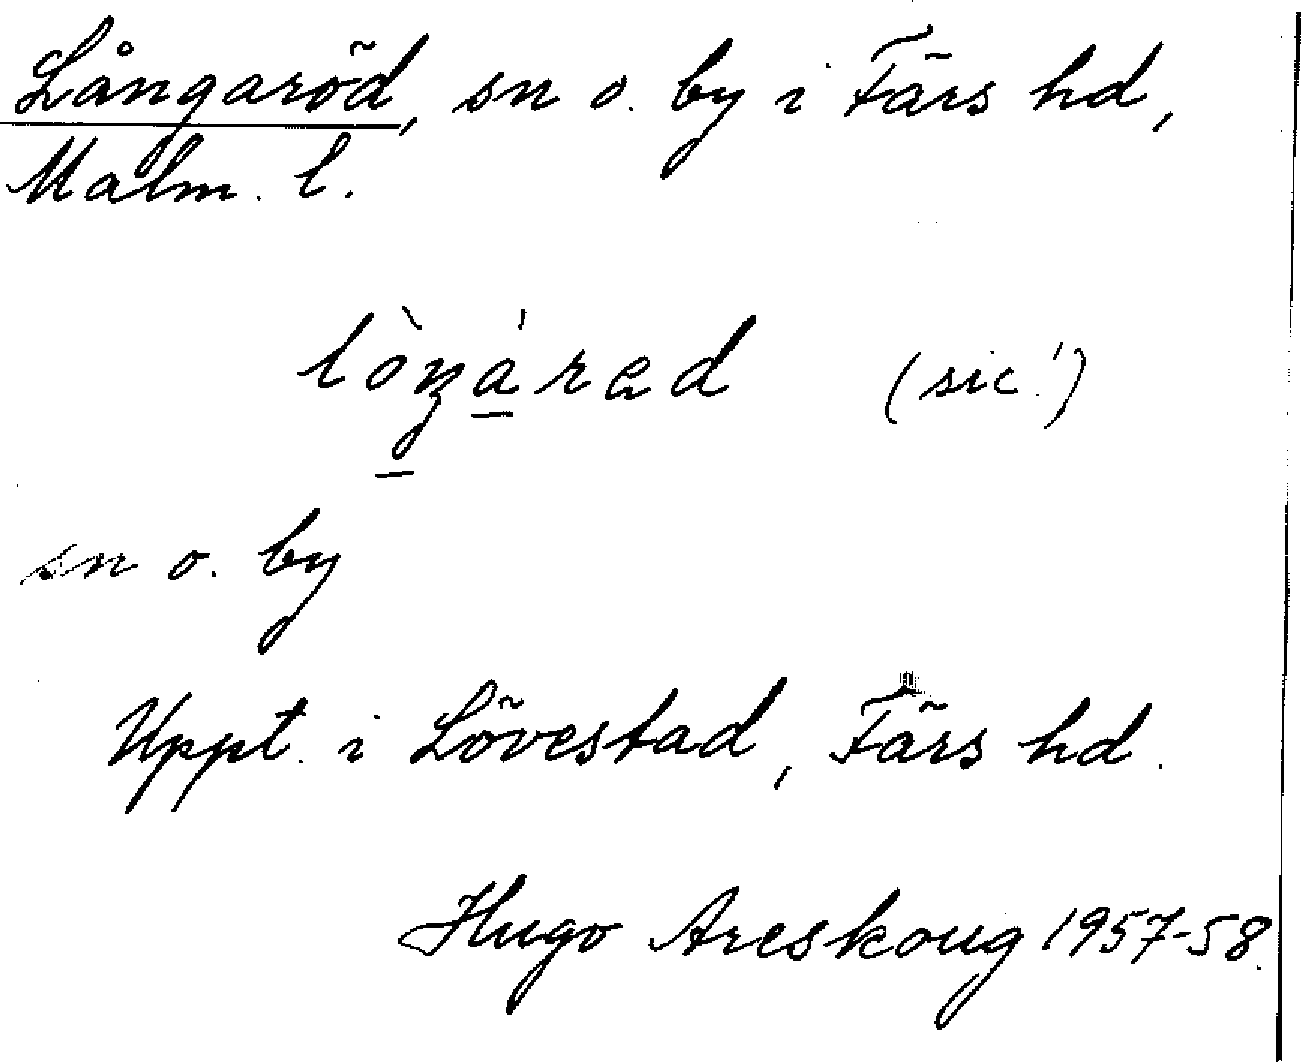 Långaröd, sn o. by i Färs hd,
Malm. l.
lòŋáred (sic!)
sn o. by
Uppt. i Lövestad, Färs hd.
Hugo Areskoug 1957-58.